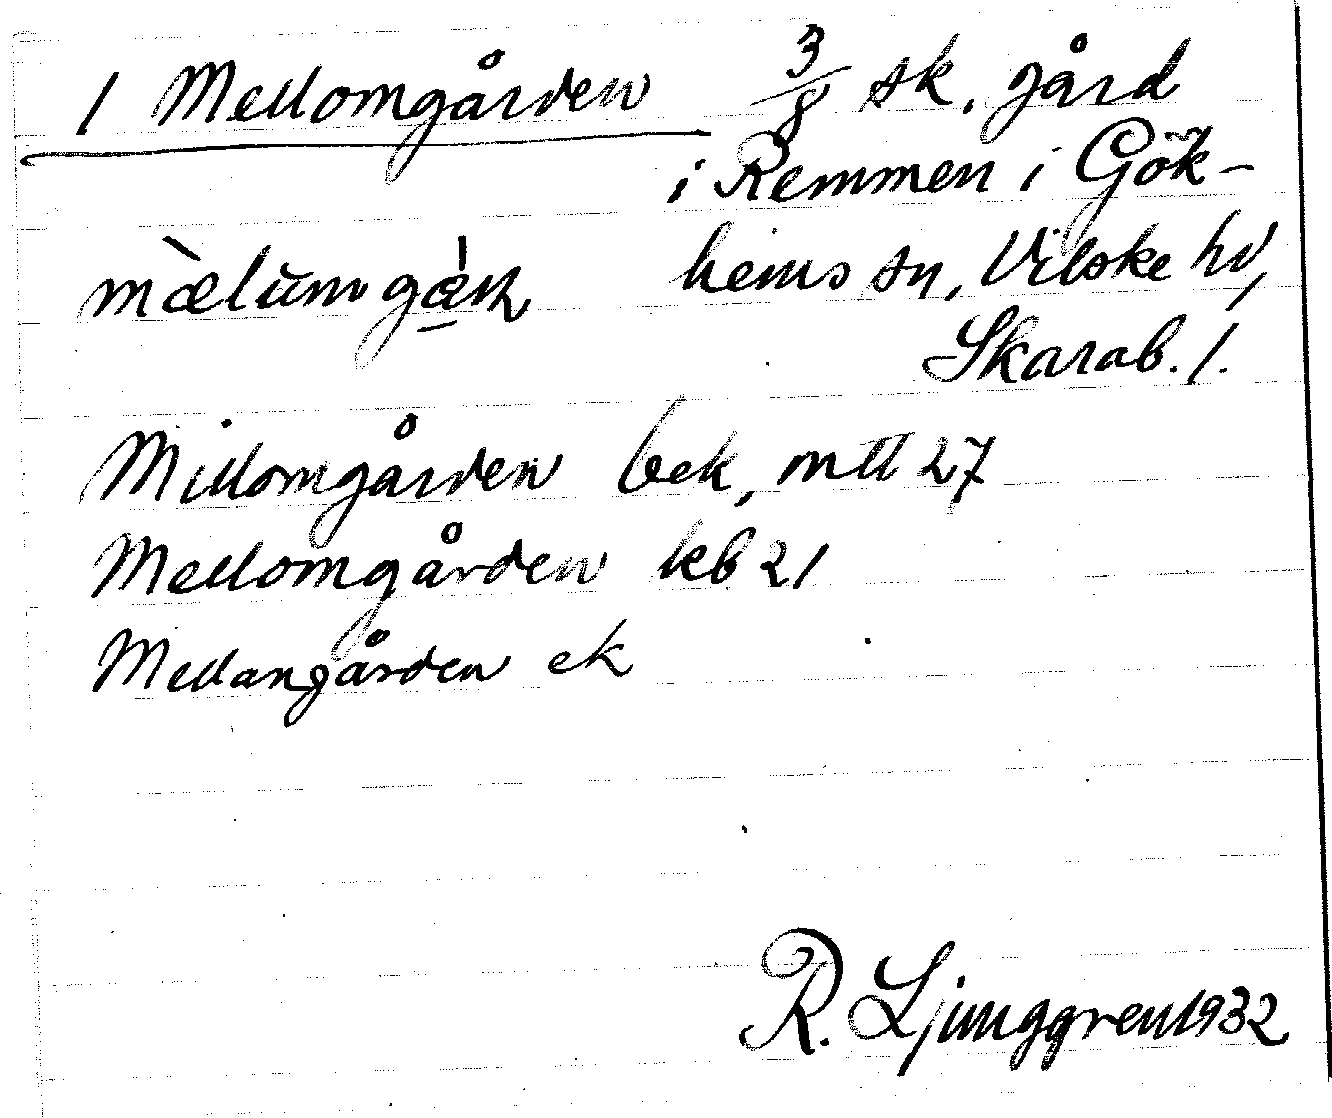 1 Mellomgården 3/8 sk. gård
i Remmen i Gök-
hems sn, Vilske hd,
Skarab. l.
mælumgæɳ
Millomgården bek, mtl 27
Mellomgården kb 21
Mellangården ek
R. Ljunggren 1932